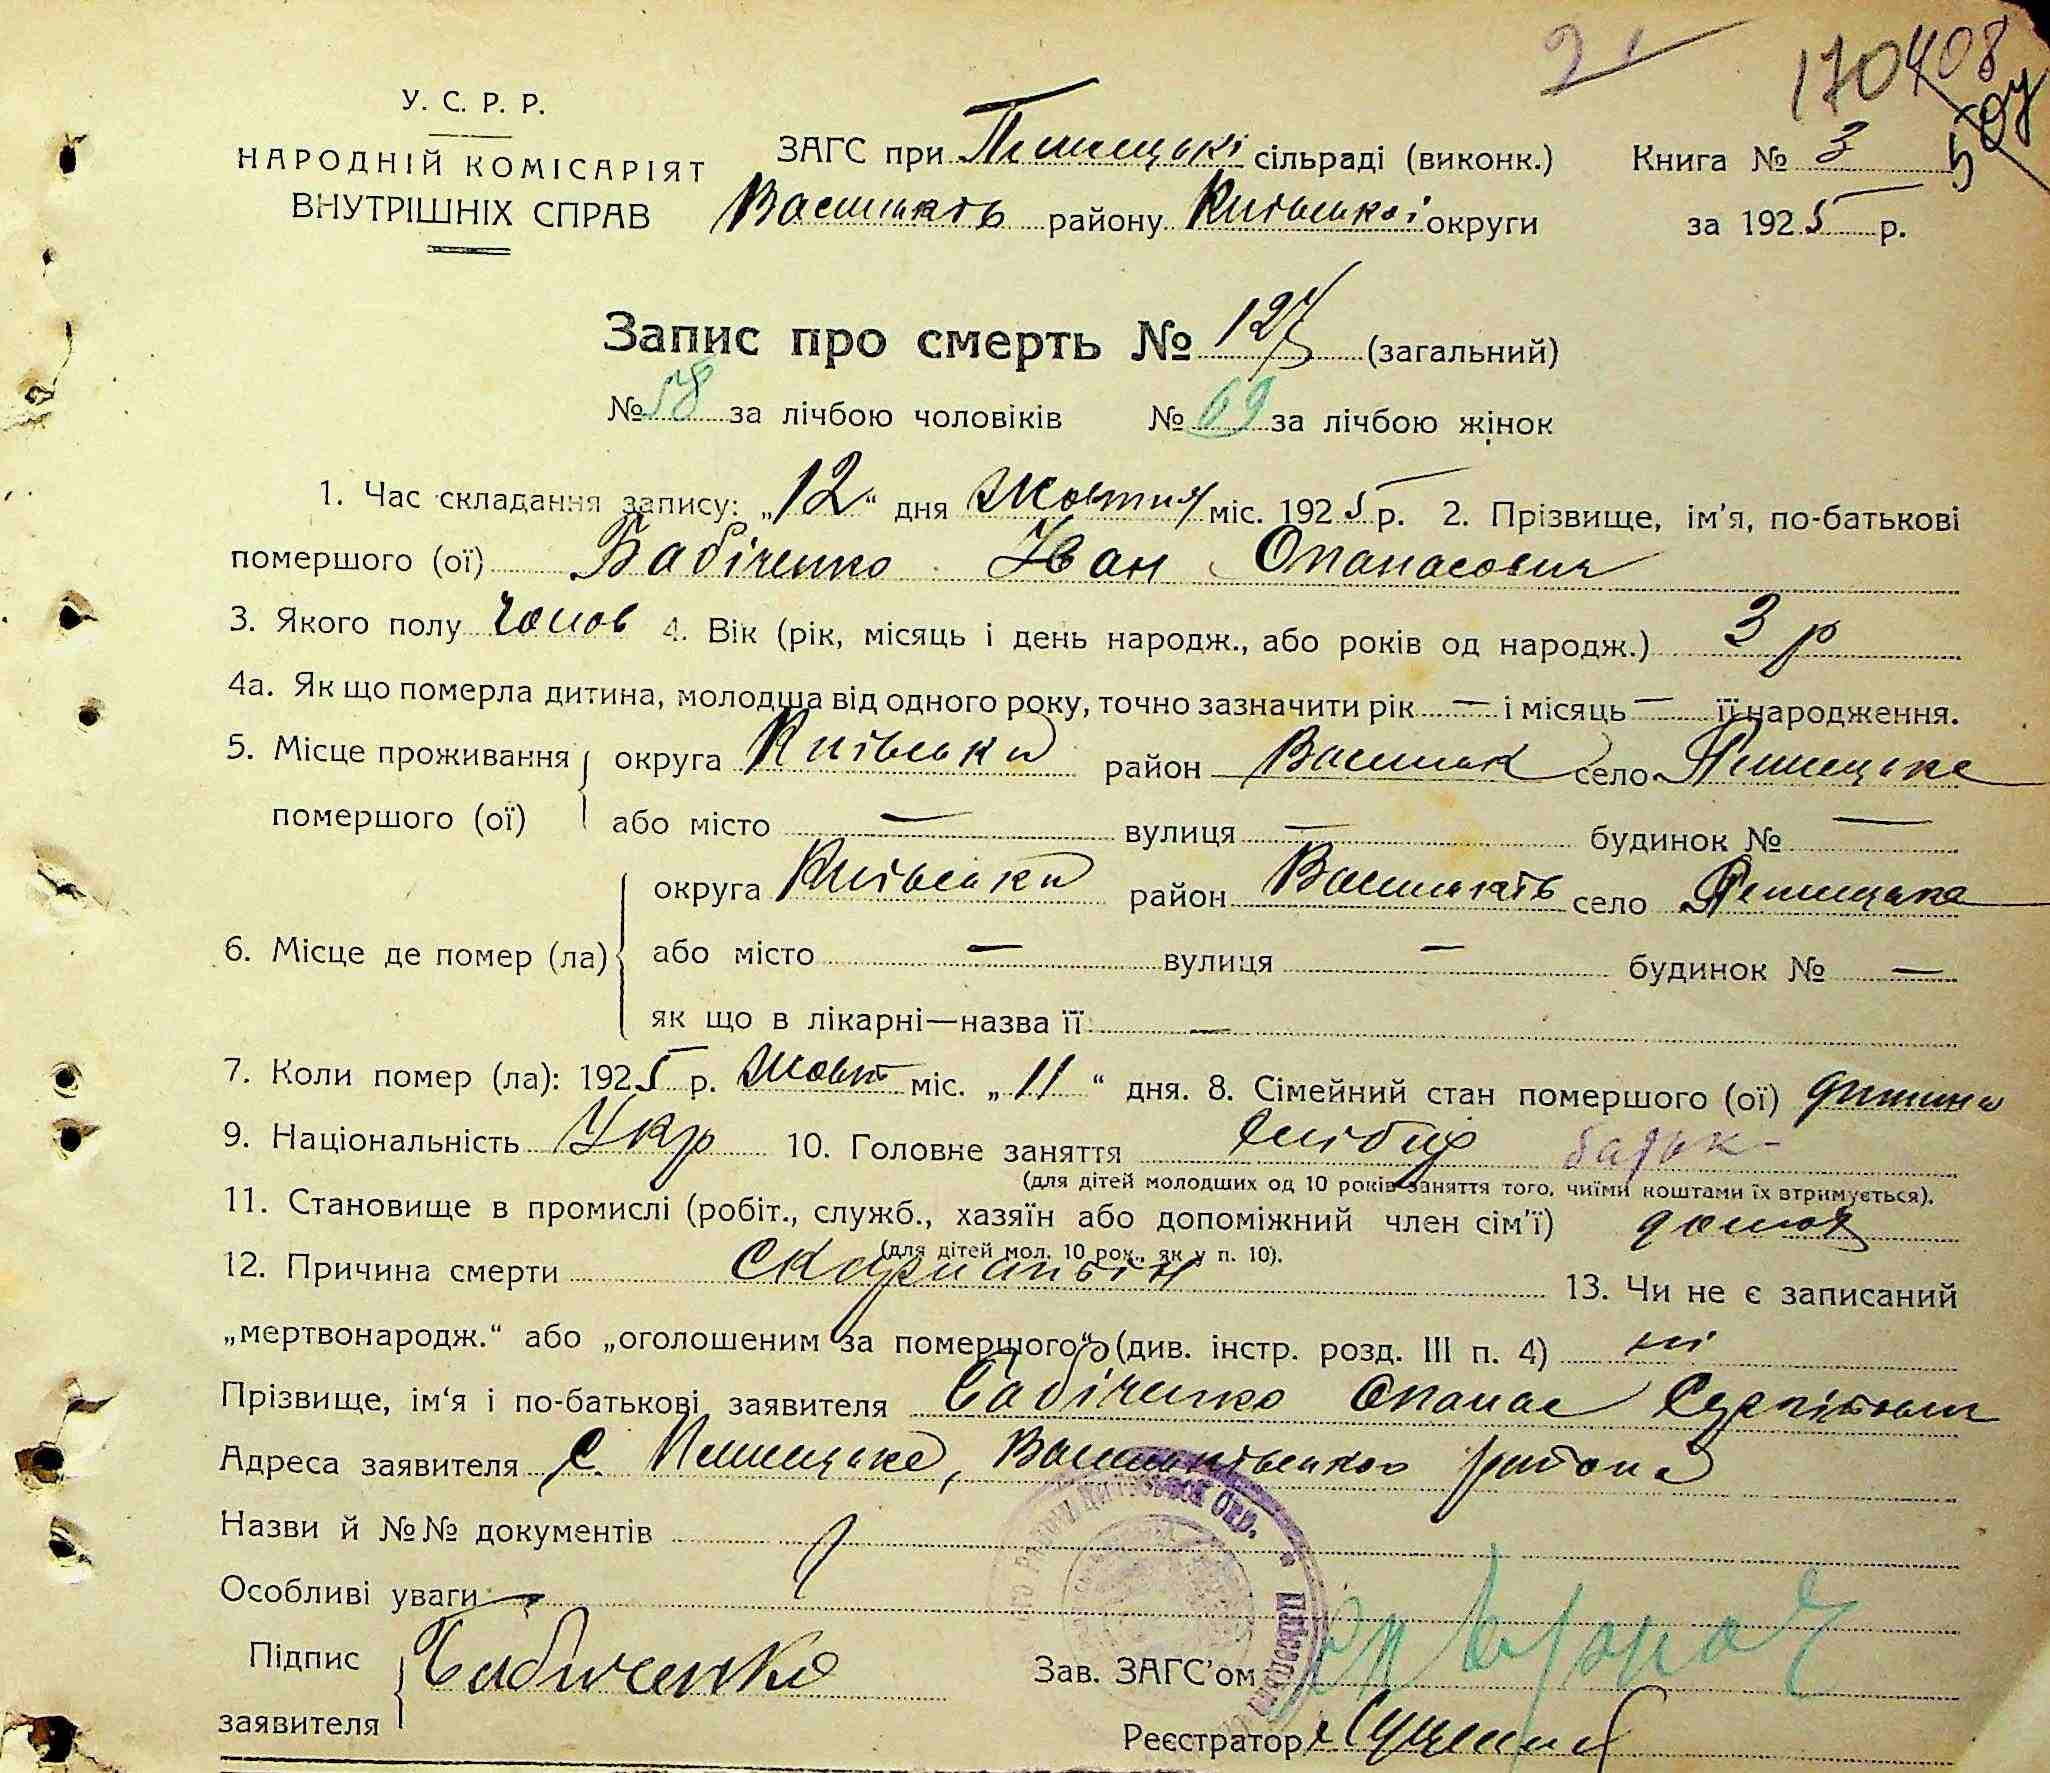 170 408
У. С. Р. Р.
НАРОДНІЙ КОМІСАРІЯТ
ВНУТРІШНІХ СПРАВ
ЗАГС при сільраді (виконк.) Книга № 3
району Київської округи за 1925 р.
Запис про смерть № 127 (загальний)
№ 58 за лічбою чоловіків № 69 за лічбою жінок
1. Час складання запису: „12“ дня Жовтня міс. 1925 р. 2. Прізвище, ім'я, по-батькові
помершого (ої) Бабіченко Іван Опанасович
3. Якого полу чолов 4. Вік (рік, місяць і день народж., або років од народж.) 3 р
4а. Як що померла дитина, молодша від одного року, точно зазначити рік — і місяць — її народження.
5. Місце проживання округа Київська район Васильк село
помершого (ої) або місто — вулиця — будинок № —
округа Київська район село
6. Місце де помер (ла) або місто — вулиця — будинок № —
як що в лікарні—назва її: —
7. Коли помер (ла): 1925 р. Жовт міс. „11“ дня. 8. Сімейний стан помершого (ої) дитина
9. Національність Укр 10. Головне заняття хлібор батьк-
(для дітей молодших од 10 років заняття того, чиїми коштами їх втримується).
11. Становище в промислі (робіт., служб., хазяїн або допоміжний член сім'ї)
(для дітей мол. 10 рок., як у п. 10).
12. Причина смерти Скарлатын 13. Чи не є записаний
„мертвонародж.“ або „оголошеним за помершого“ (див. інстр. розд. III п. 4) ні
Прізвище, ім'я і по-батькові заявителя Бабіченко Опанас
Адреса заявителя с.
Назви й №№ документів
Особливі уваги —
Підпис
заявителя Бабиченко
Зав. ЗАГС'ом
Реєстратор